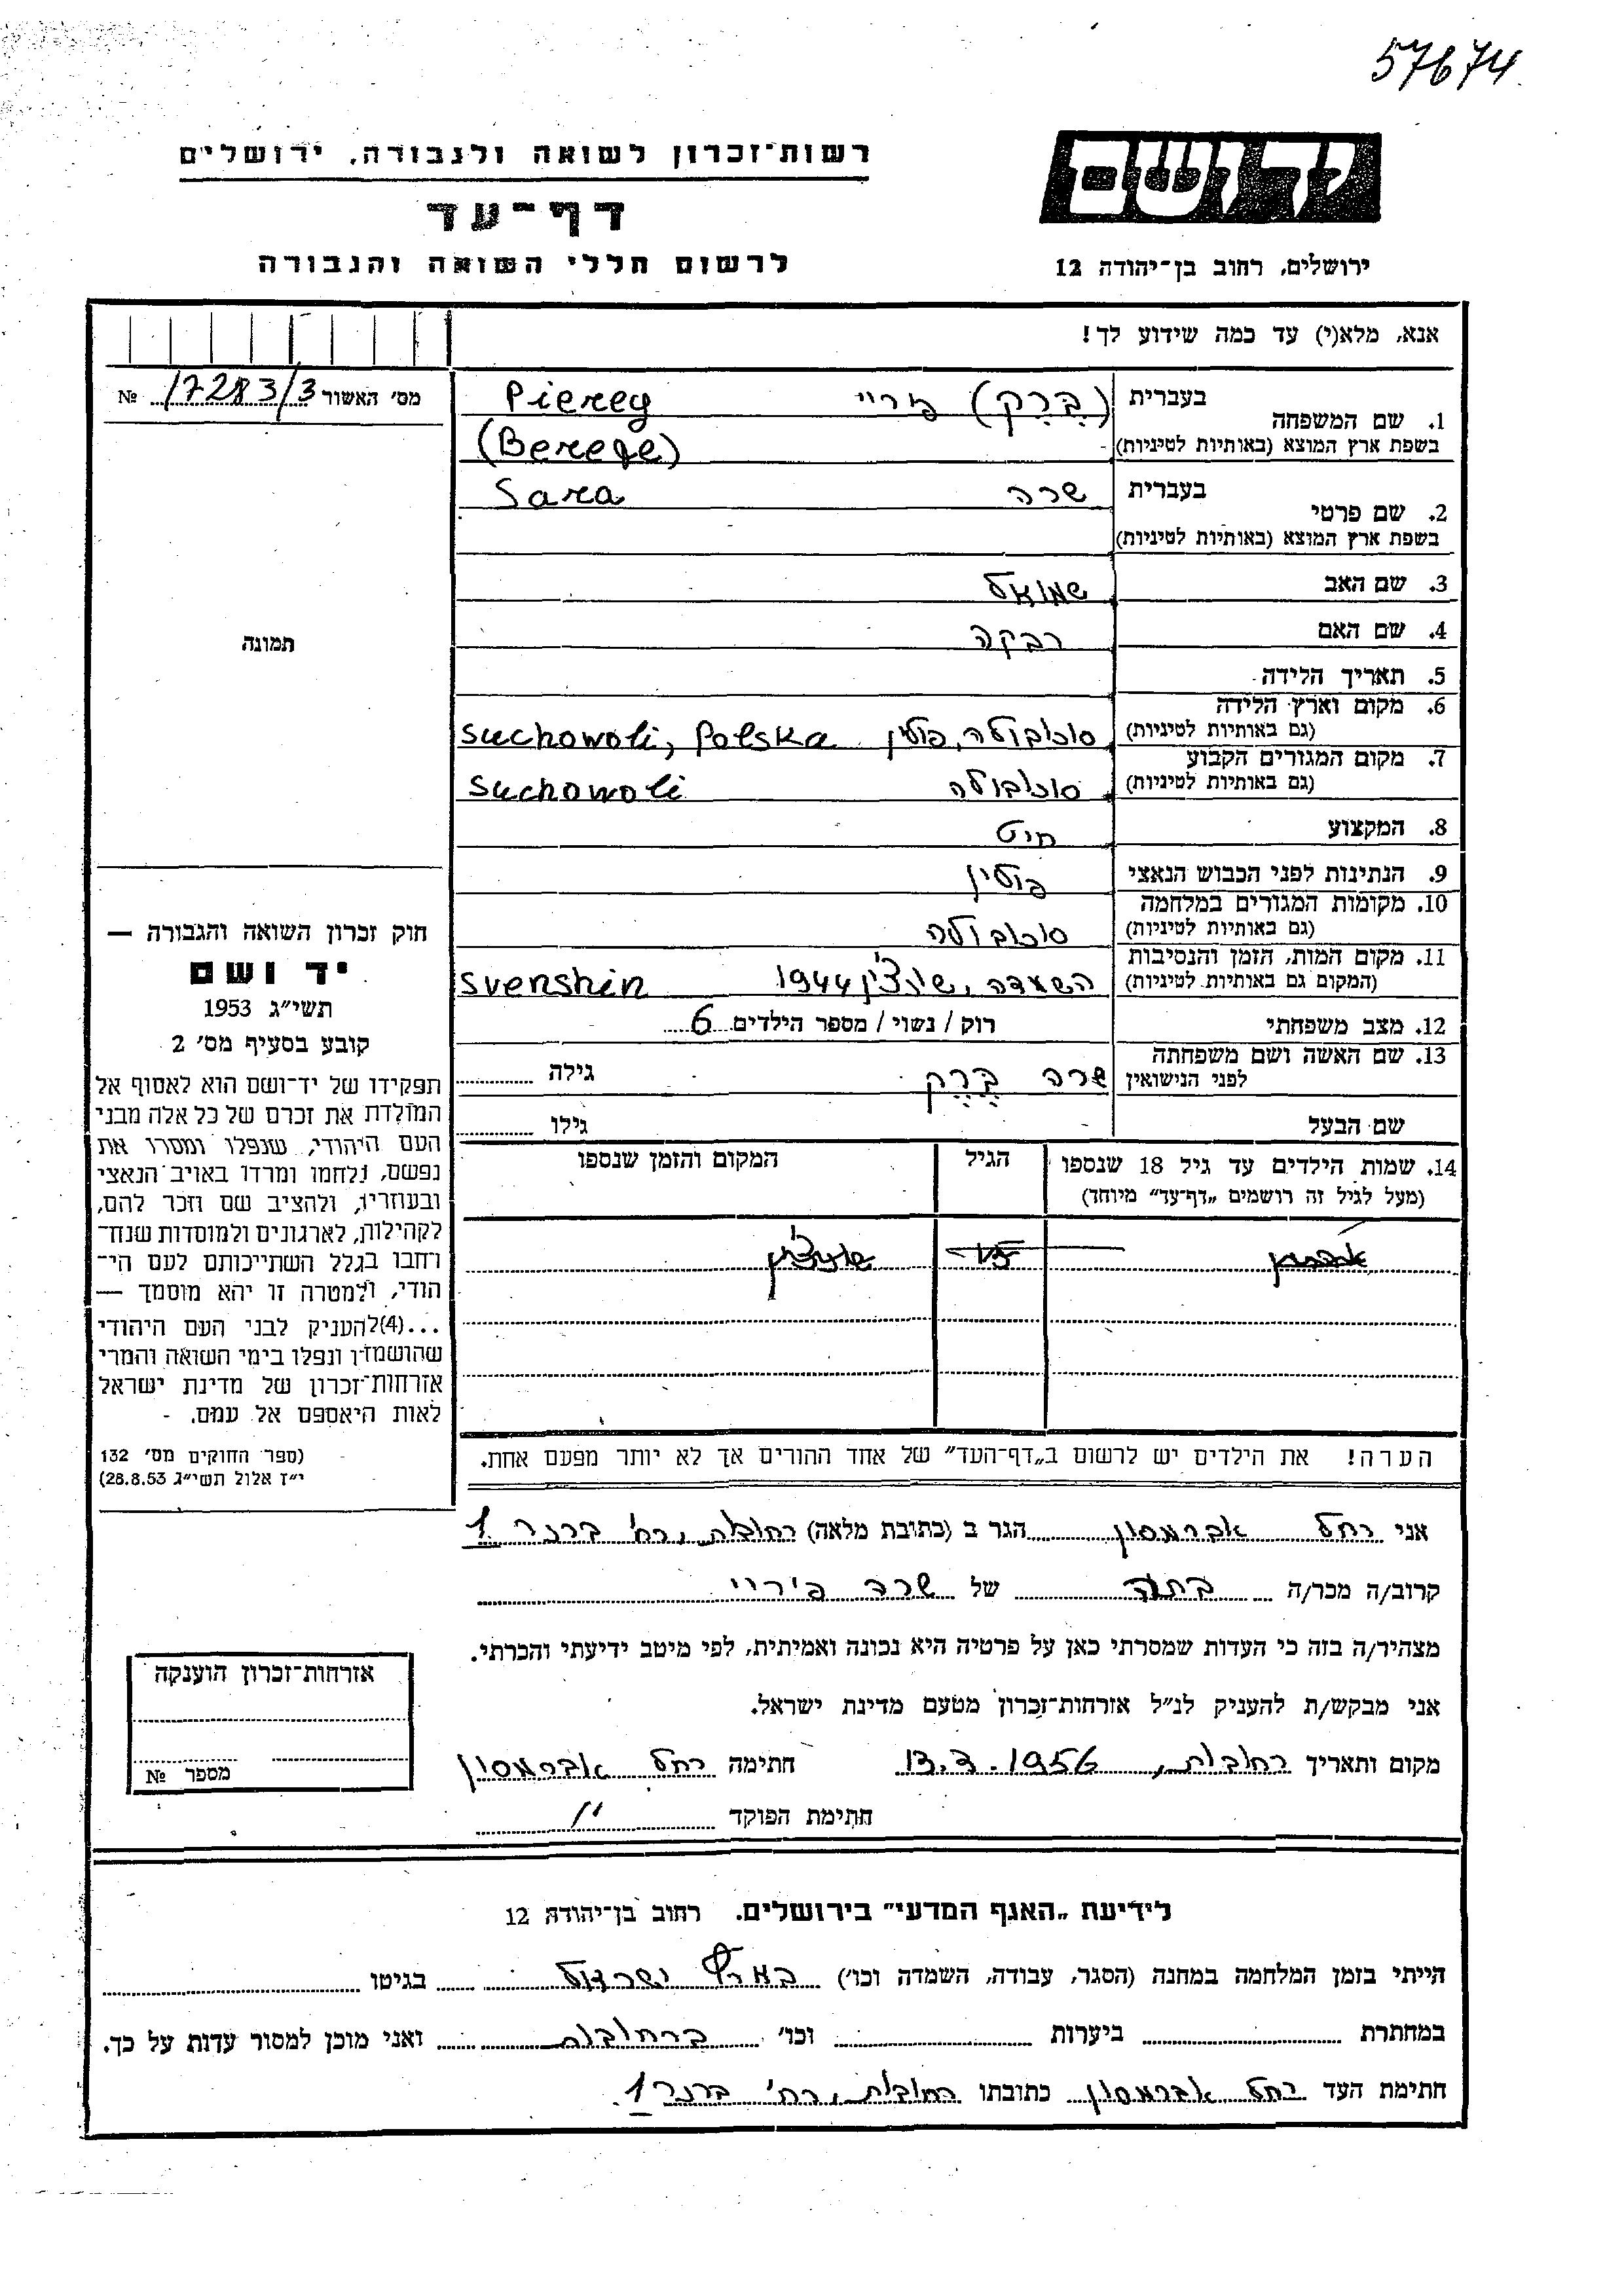 57674
רשות־זכרון לשואה ולגבורה, ירושלים
ידושם
דף־עד
לרשום חללי השואה והגבורה
ירושלים, רחוב בן־יהודה 12
אנא, מלא(י) עד כמה שידוע לך!
מס' האשור 17283/3 №
1. שם המשפחה בעברית (בֶּרֶק) פיריי Pierey
בשפת ארץ המוצא (באותיות לטיניות) (Berege)
2. שם פרטי בעברית שרה Sara
בשפת ארץ המוצא (באותיות לטיניות)
3. שם האב שמואל
4. שם האם רבקה
תמונה
5. תאריך הלידה
6. מקום וארץ הלידה
(גם באותיות לטיניות) סוכובולה, פולין Suchowoli, Polska
7. מקום המגורים הקבוע
(גם באותיות לטיניות) סוכובולה Suchowoli
8. המקצוע חיט
9. הנתינות לפני הכבוש הנאצי פולין
10. מקומות המגורים במלחמה
(גם באותיות לטיניות) סוכובולה
11. מקום המות, הזמן והנסיבות
(המקום גם באותיות לטיניות) השמדה, 1944 Svenshin
12. מצב משפחתי רוק / נשוי / מספר הילדים 6
13. שם האשה ושם משפחתה
לפני הנישואין שרה בֶּרֶק גילה
שם הבעל גילו
14. שמות הילדים עד גיל 18 שנספו הגיל המקום והזמן שנספו
(מעל לגיל זה רושמים „דף־עד" מיוחד)
הערה! את הילדים יש לרשום ב„דף־העד" של אחד ההורים אך לא יותר מפעם אחת.
חוק זכרון השואה והגבורה —
יד ושם
תשי"ג 1953
קובע בסעיף מס' 2
תפקידו של יד־ושם הוא לאסוף אל
המולדת את זכרם של כל אלה מבני
העם היהודי, שנפלו ומסרו את
נפשם, נלחמו ומרדו באויב הנאצי
ובעוזריו, ולהציב שם וזכר להם,
לקהילות, לארגונים ולמוסדות שנח־
רחבו בגלל השתייכותם לעם הי־
הודי, ולמטרה זו יהא מוסמך —
...(4) להעניק לבני העם היהודי
שהושמדו ונפלו בימי השואה והמרי
אזרחות־זכרון של מדינת ישראל
לאות היאספם אל עמם.
(ספר החוקים מס' 132
י"ז אלול תשי"ג 28.8.53)
אני רחל אברמסון הגר ב (כתובת מלאה) רחובות, רח' ברנר 1
קרוב/ה מכר/ה בתה של שרה פיריי
מצהיר/ה בזה כי העדות שמסרתי כאן על פרטיה היא נכונה ואמיתית, לפי מיטב ידיעתי והכרתי.
אני מבקש/ת להעניק לנ"ל אזרחות־זכרון מטעם מדינת ישראל.
מקום ותאריך רחובות, 13.3.1956 חתימה רחל אברמסון
חתימת הפוקד
אזרחות־זכרון הוענקה
מספר №
לידיעת „האגף המדעי" בירושלים. רחוב בן־יהודה 12
הייתי בזמן המלחמה במחנה (הסגר, עבודה, השמדה וכו') בארץ ישראל בגיטו
במחתרת ביערות וכו' ברחובות ואני מוכן למסור עדות על כך.
חתימת העד רחל אברמסון כתובתו רחובות, רח' ברנר 1